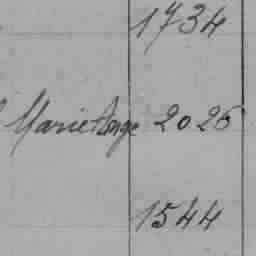 1734
Marie Ange 2026
1544